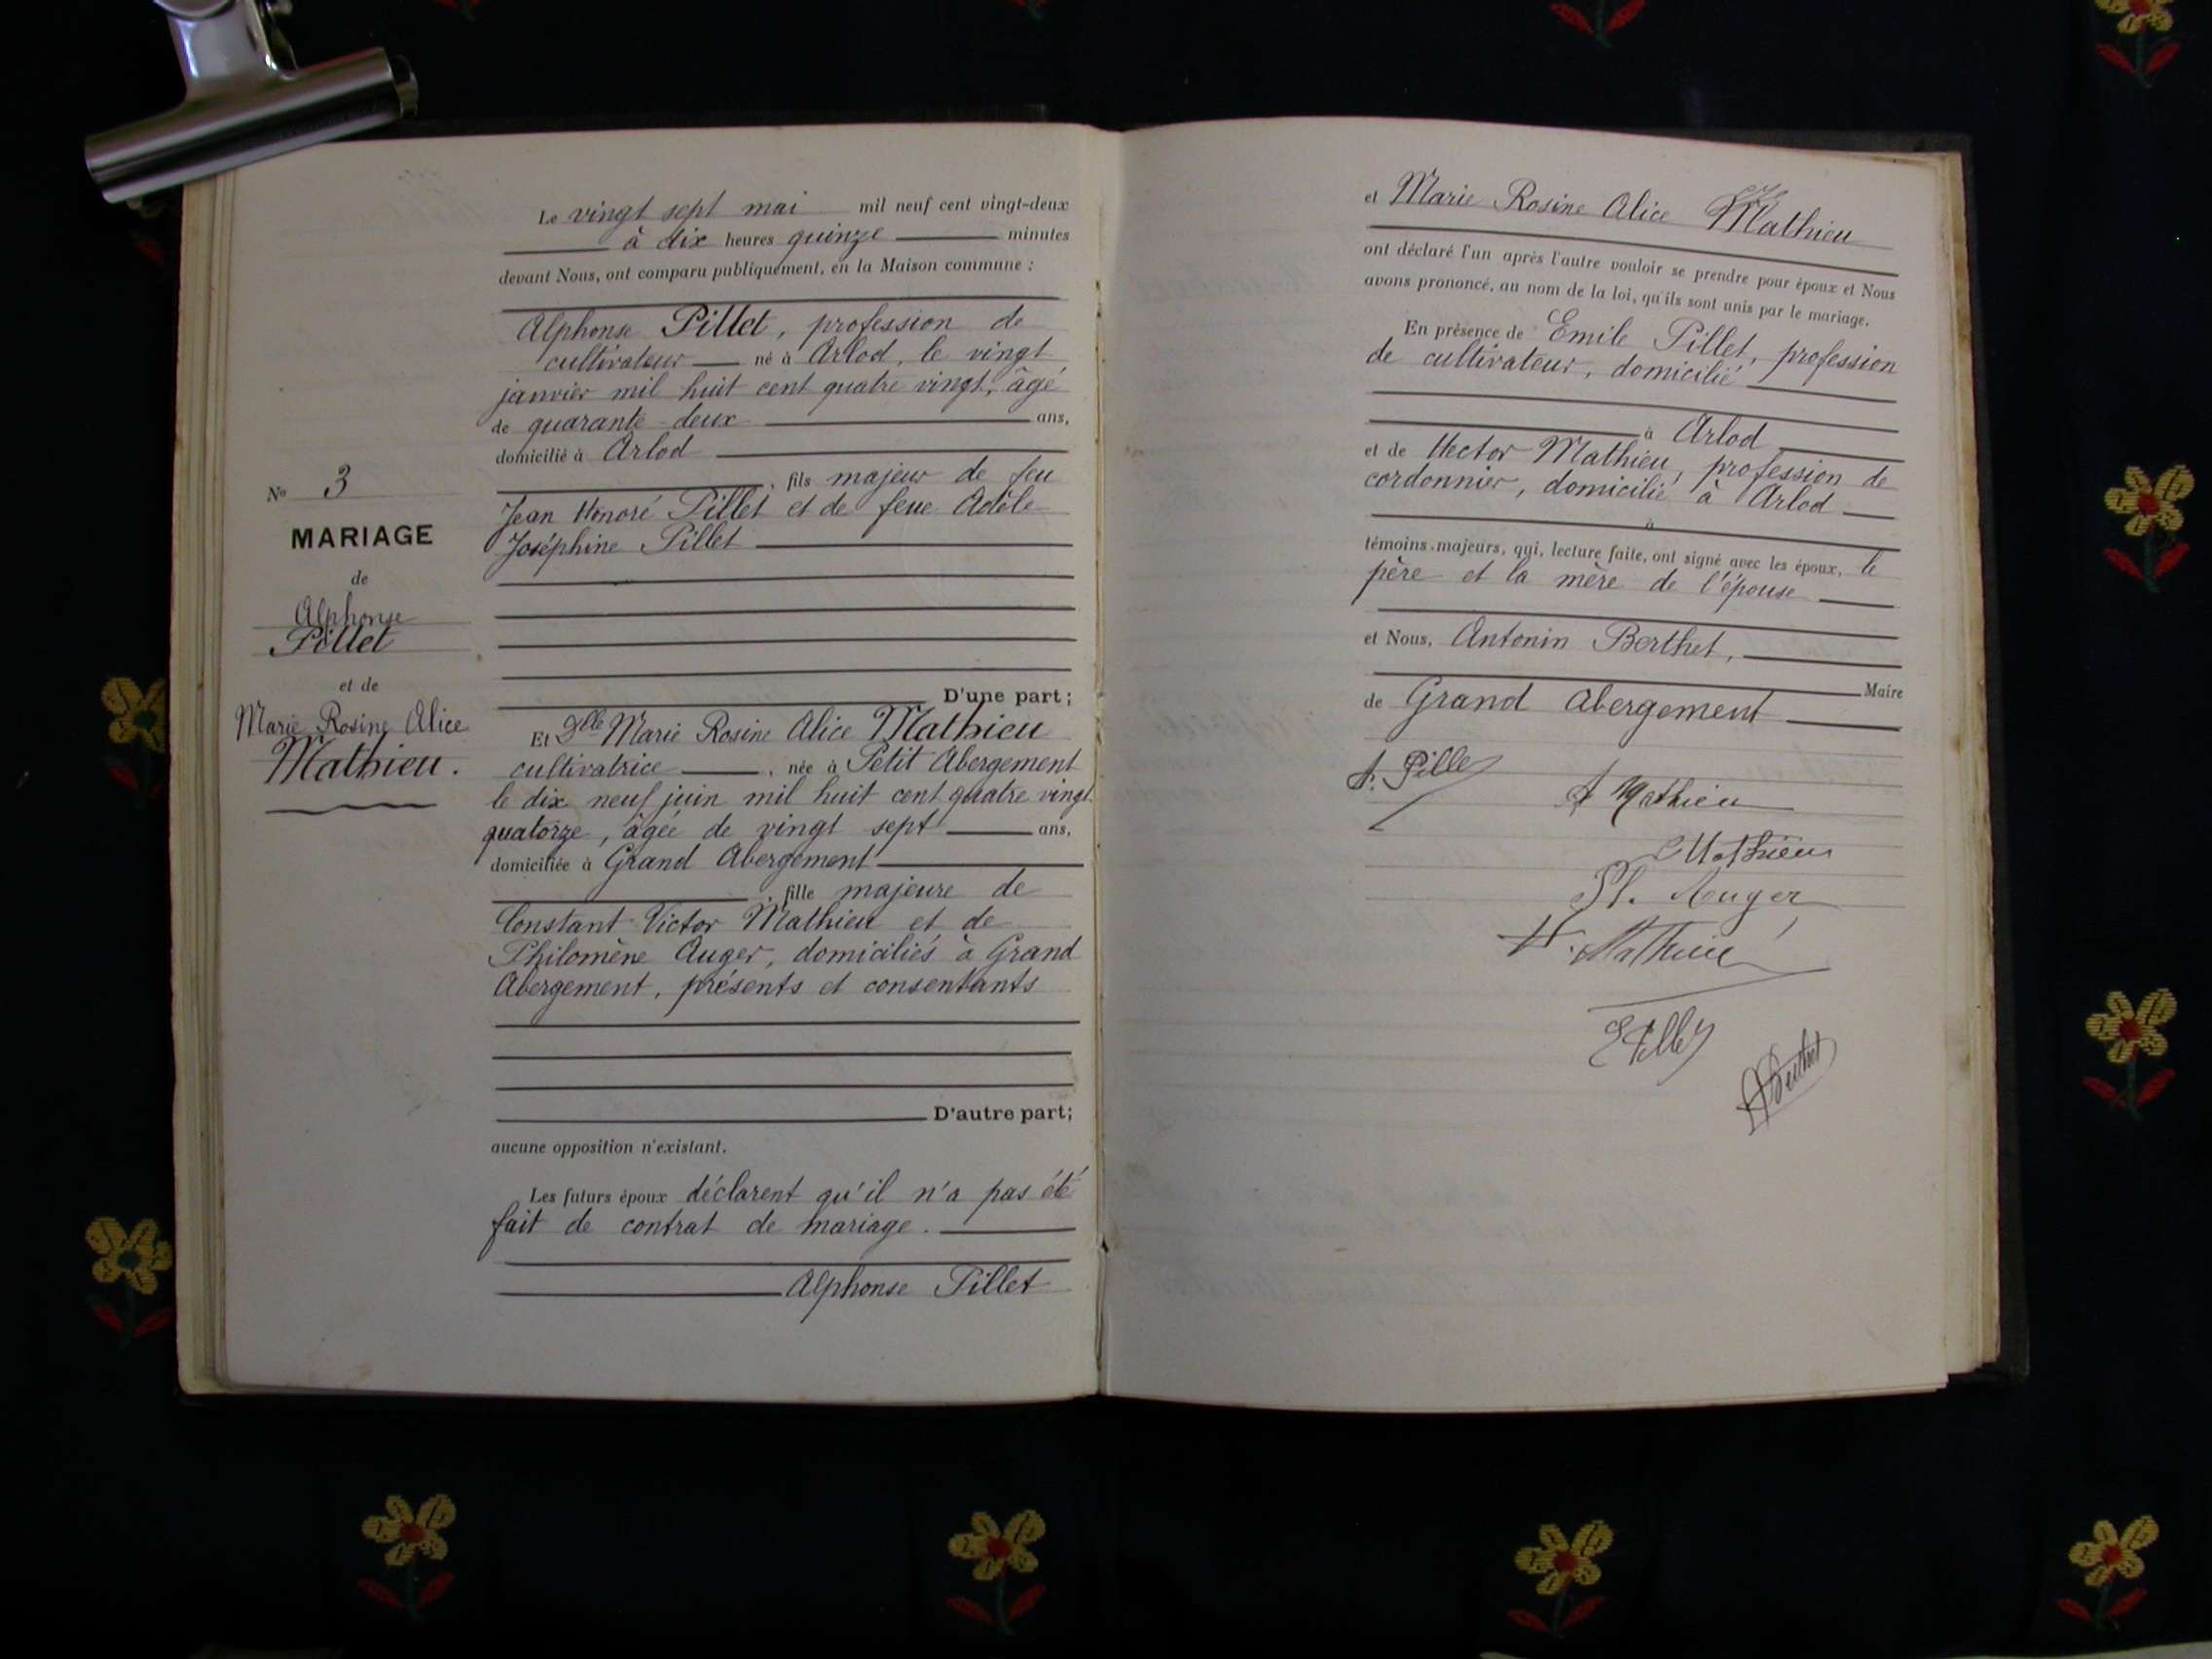 Le vingt sept mai mil neuf cent vingt-deux
à dix heures quinze minutes
devant Nous, ont comparu publiquement, en la Maison commune :
Alphonse Pillet, profession de
cultivateur né à Arlod, le vingt
janvier mil huit cent quatre vingt, âgé
de quarante-deux ans,
domicilié à Arlod
, fils majeur de feu
Jean Honoré Pillet et de feue Adèle
Joséphine Pillet
D'une part;
No 3
MARIAGE
de
Alphonse
Pillet
et de
Marie Rosine Alice
Mathieu.
Et Dlle Marie Rosine Alice Mathieu
cultivatrice , née à Petit Abergement
le dix neuf juin mil huit cent quatre vingt
quatorze, âgée de vingt sept ans,
domiciliée à Grand Abergement
, fille majeure de
Constant Victor Mathieu et de
Philomène Auger, domiciliés à Grand
Abergement, présents et consentants
D'autre part;
aucune opposition n'existant.
Les futurs époux déclarent qu'il n'a pas été
fait de contrat de mariage.
Alphonse Pillet
et Marie Rosine Alice Mathieu
ont déclaré l'un après l'autre vouloir se prendre pour époux et Nous
avons prononcé, au nom de la loi, qu'ils sont unis par le mariage.
En présence de Emile Pillet, profession
de cultivateur, domicilié
à Arlod
et de Hector Mathieu, profession de
cordonnier, domicilié à Arlod
à
témoins majeurs, qui, lecture faite, ont signé avec les époux, le
père et la mère de l'épouse
et Nous, Antonin Berthet,
Maire
de Grand Abergement
A. Pillet
A Mathieu
C Mathieu
Ph. Auger
H. Mathieu
E Pillet
A Berthet